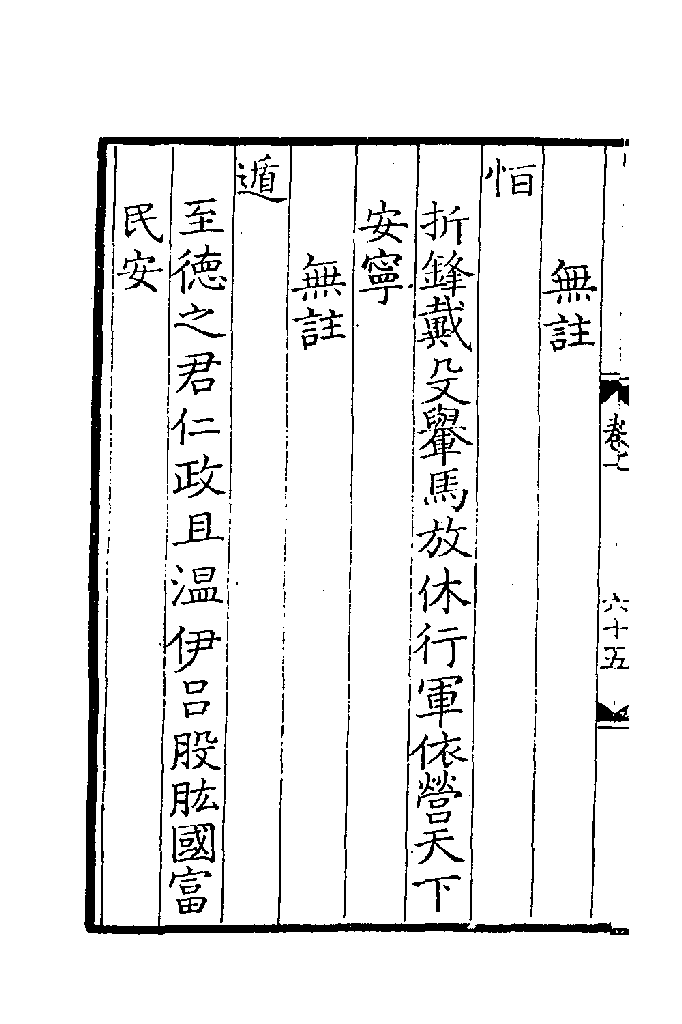 卷七
六十五
無註
恒
折鋒戴殳轝馬放休行軍依營天下
安寧
無註
遁
至德之君仁政且溫伊呂股肱國富
民安